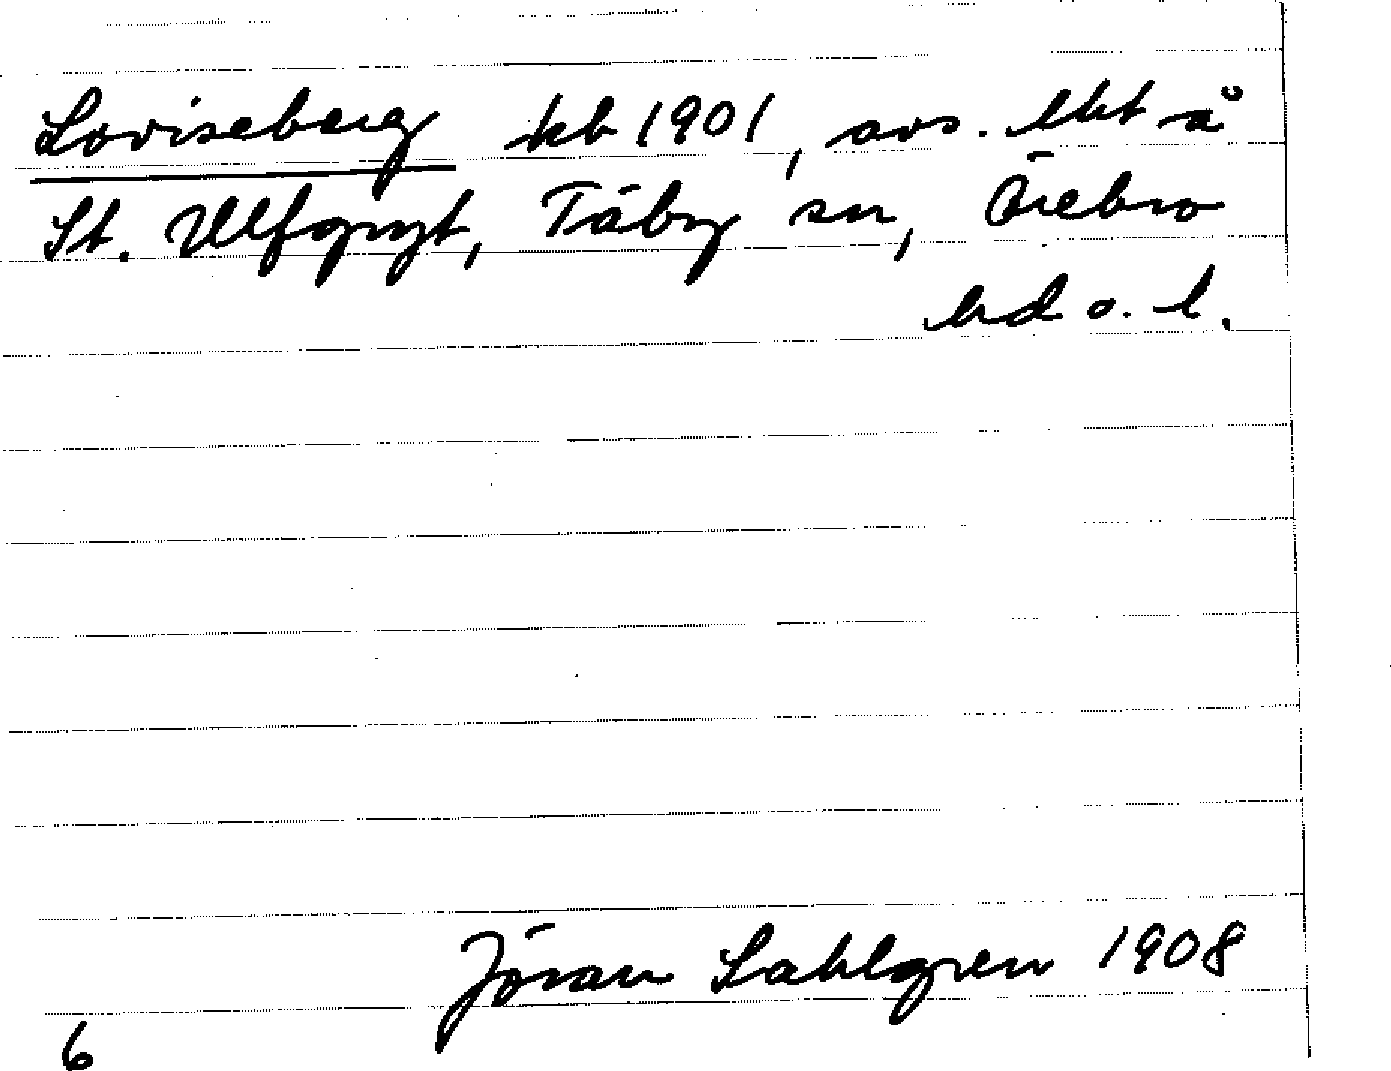 Loviseberg kb 1901, avs. lht å
St. Ulfgryt, Täby sn, Örebro
hd o. l.
Jöran Sahlgren 1908
6